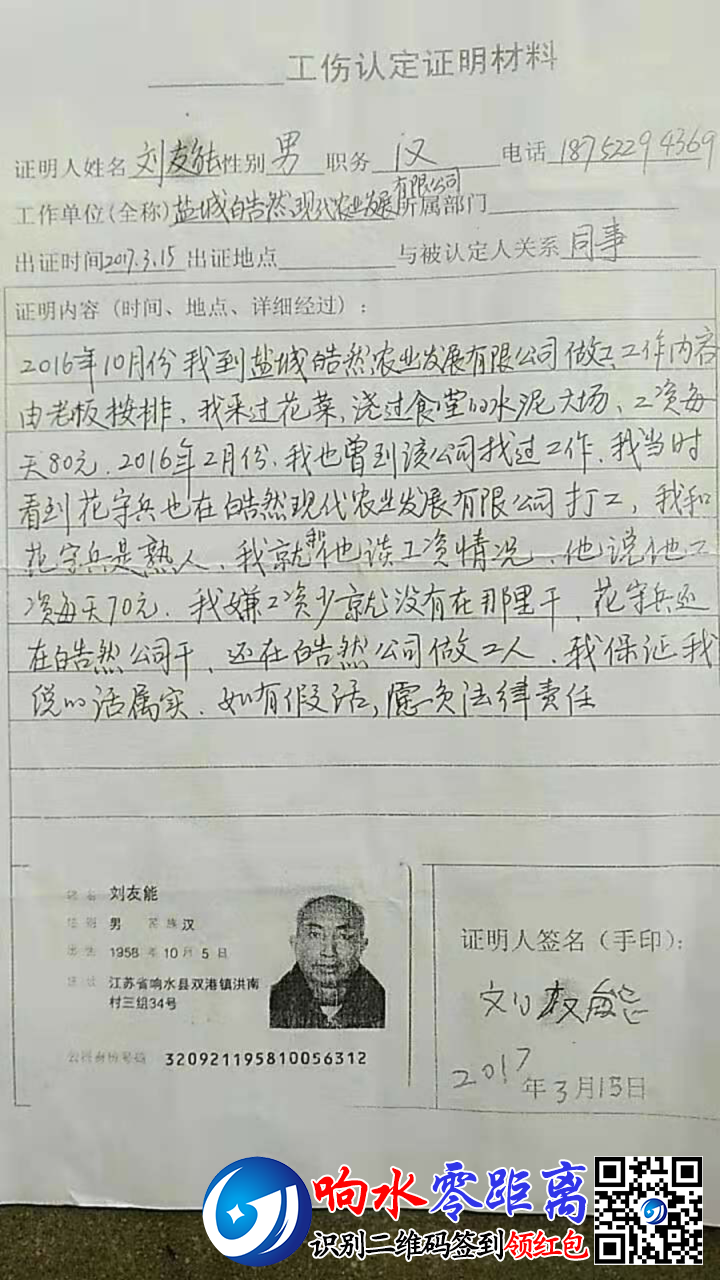 工伤认定证明材料
证明人姓名 刘友能 性别 男 职务 汉 电话 18752294369
工作单位(全称) 盐城皓然现代农业发展有限公司 所属部门
出证时间 2017.3.15 出证地点 与被认定人关系 同事
证明内容（时间、地点、详细经过）：
2016年10月份我到盐城皓然农业发展有限公司做工工作内容
由老板按排、我采过花菜,浇过食堂的水泥大场、工资每
天80元.2016年2月份.我也曾到该公司找过工作.我当时
看到花守兵也在皓然现代农业发展有限公司打工，我和
花守兵是熟人、我就和他谈工资情况、他说他工
资每天70元.我嫌工资少就没有在那里干,花守兵还
在皓然公司干、还在皓然公司做工人.我保证我
说的话属实.如有假话,愿负法律责任
姓名 刘友能
性别 男 民族 汉
出生 1958年10月5日
住址 江苏省响水县双港镇洪南
村三组34号
公民身份号码 320921195810056312
证明人签名（手印）：
刘友能
2017年3月15日
响水零距离
识别二维码签到领红包